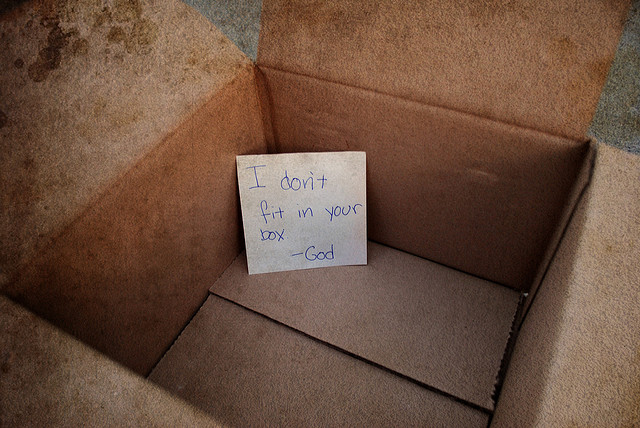 I don't
fit in your
box
-God